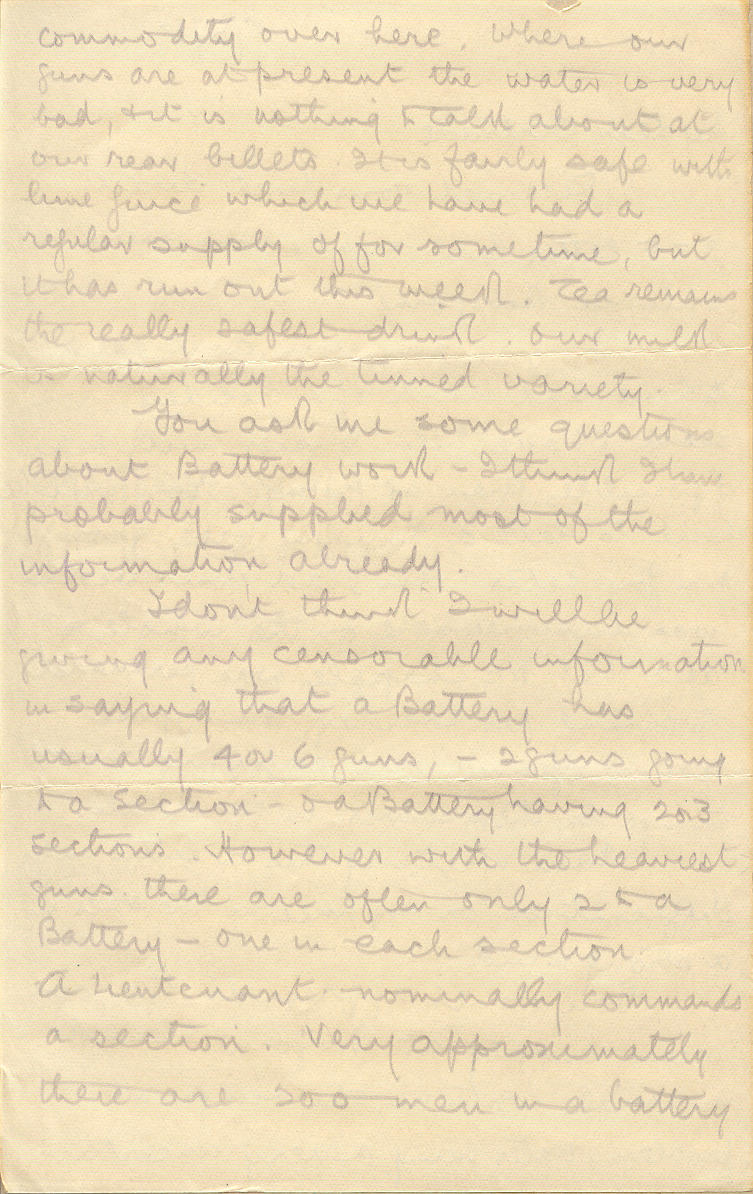 commodity over here. Where our
guns are at present the water is very
bad, & it is nothing to talk about at
our rear billets. It is fairly safe with
lime juice which we have had a
regular supply of for sometime, but
it has run out this week. Tea remains
the really safest drink. Our milk
is naturally the tinned variety.
You ask me some questions
about Battery work - I think I have
probably supplied most of the
information already.
I don't think I will be
giving any censorable information
in saying that a Battery has
usually 4 or 6 guns, - 2 guns going
to a Section - & a Battery having 2 or 3
sections. However with the heaviest
guns there are often only 2 to a
Battery - one in each section.
A Lieutenant nominally commands
a section. Very approximately
there are 200 men in a battery